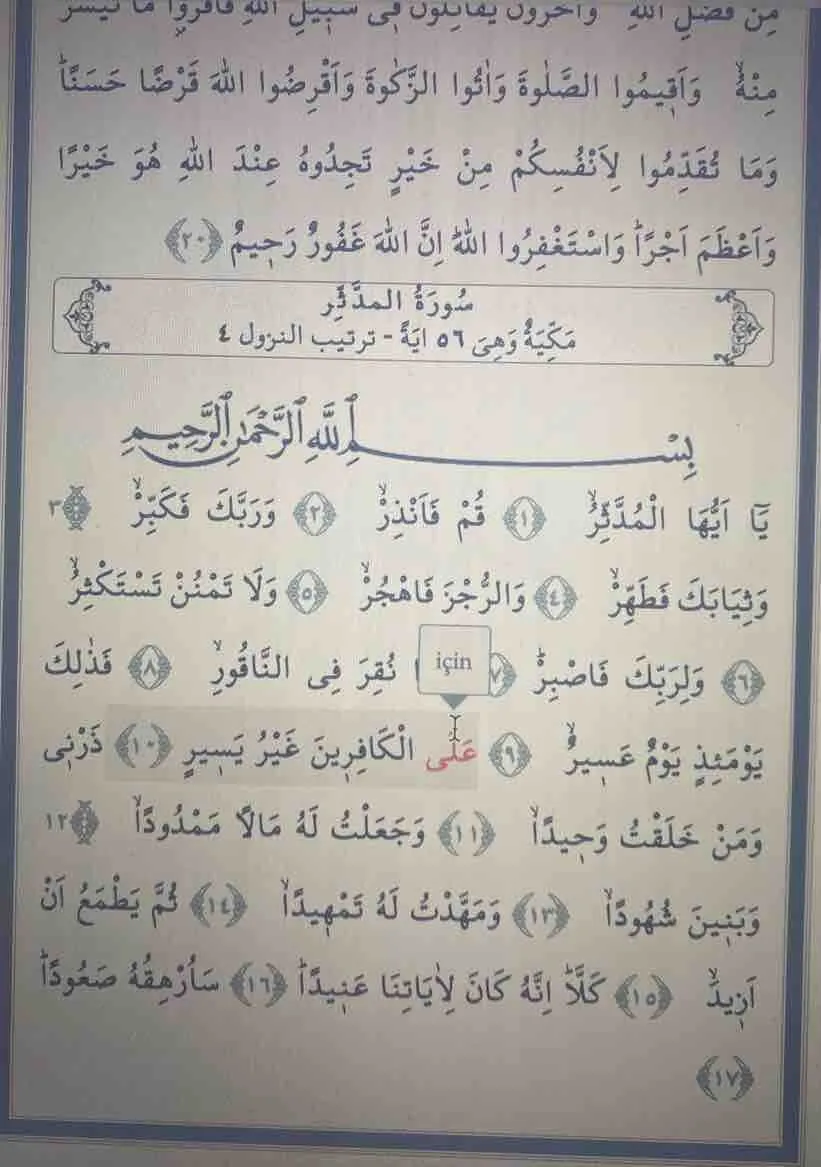 مِنْ فَضْلِ اللهِ وَاٰخَرُونَ يُقَاتِلُونَ فٖى سَبٖيلِ اللهِ فَاقْرَؤُا مَا تَيَسَّرَ
مِنْهُۙ وَاَقٖيمُوا الصَّلٰوةَ وَاٰتُوا الزَّكٰوةَ وَاَقْرِضُوا اللهَ قَرْضًا حَسَنًاؕ
وَمَا تُقَدِّمُوا لِاَنْفُسِكُمْ مِنْ خَيْرٍ تَجِدُوهُ عِنْدَ اللهِ هُوَ خَيْرًا
وَاَعْظَمَ اَجْرًاؕ وَاسْتَغْفِرُوا اللهَؕ اِنَّ اللهَ غَفُورٌ رَحٖيمٌ ﴿٢٠﴾
سُورَةُ المدَّثِّر
مَكِّيَةٌ وَهِىَ ٥٦ اٰيَةً - ترتيب النزول ٤
بِسْمِ اللهِ الرَّحْمٰنِ الرَّحٖيمِ
يَٓا اَيُّهَا الْمُدَّثِّرُۙ ﴿١﴾ قُمْ فَاَنْذِرْۙ ﴿٢﴾ وَرَبَّكَ فَكَبِّرْۙ ﴿٣
وَثِيَابَكَ فَطَهِّرْۙ ﴿٤﴾ وَالرُّجْزَ فَاهْجُرْۙ ﴿٥﴾ وَلَا تَمْنُنْ تَسْتَكْثِرُۙ
﴿٦﴾ وَلِرَبِّكَ فَاصْبِرْؕ ﴿٧﴾ نُقِرَ فِى النَّاقُورِۙ ﴿٨﴾ فَذٰلِكَ
için
يَوْمَئِذٍ يَوْمٌ عَسٖيرٌۙ ﴿٩﴾ عَلَى الْكَافِرٖينَ غَيْرُ يَسٖيرٍ ﴿١٠﴾ ذَرْنٖى
وَمَنْ خَلَقْتُ وَحٖيدًاۙ ﴿١١﴾ وَجَعَلْتُ لَهُ مَالًا مَمْدُودًاۙ ﴿١٢
وَبَنٖينَ شُهُودًاۙ ﴿١٣﴾ وَمَهَّدْتُ لَهُ تَمْهٖيدًاۙ ﴿١٤﴾ ثُمَّ يَطْمَعُ اَنْ
اَزٖيدَۙ ﴿١٥﴾ كَلَّاؕ اِنَّهُ كَانَ لِاٰيَاتِنَا عَنٖيدًاؕ ﴿١٦﴾ سَاُرْهِقُهُ صَعُودًاؕ
﴿١٧﴾